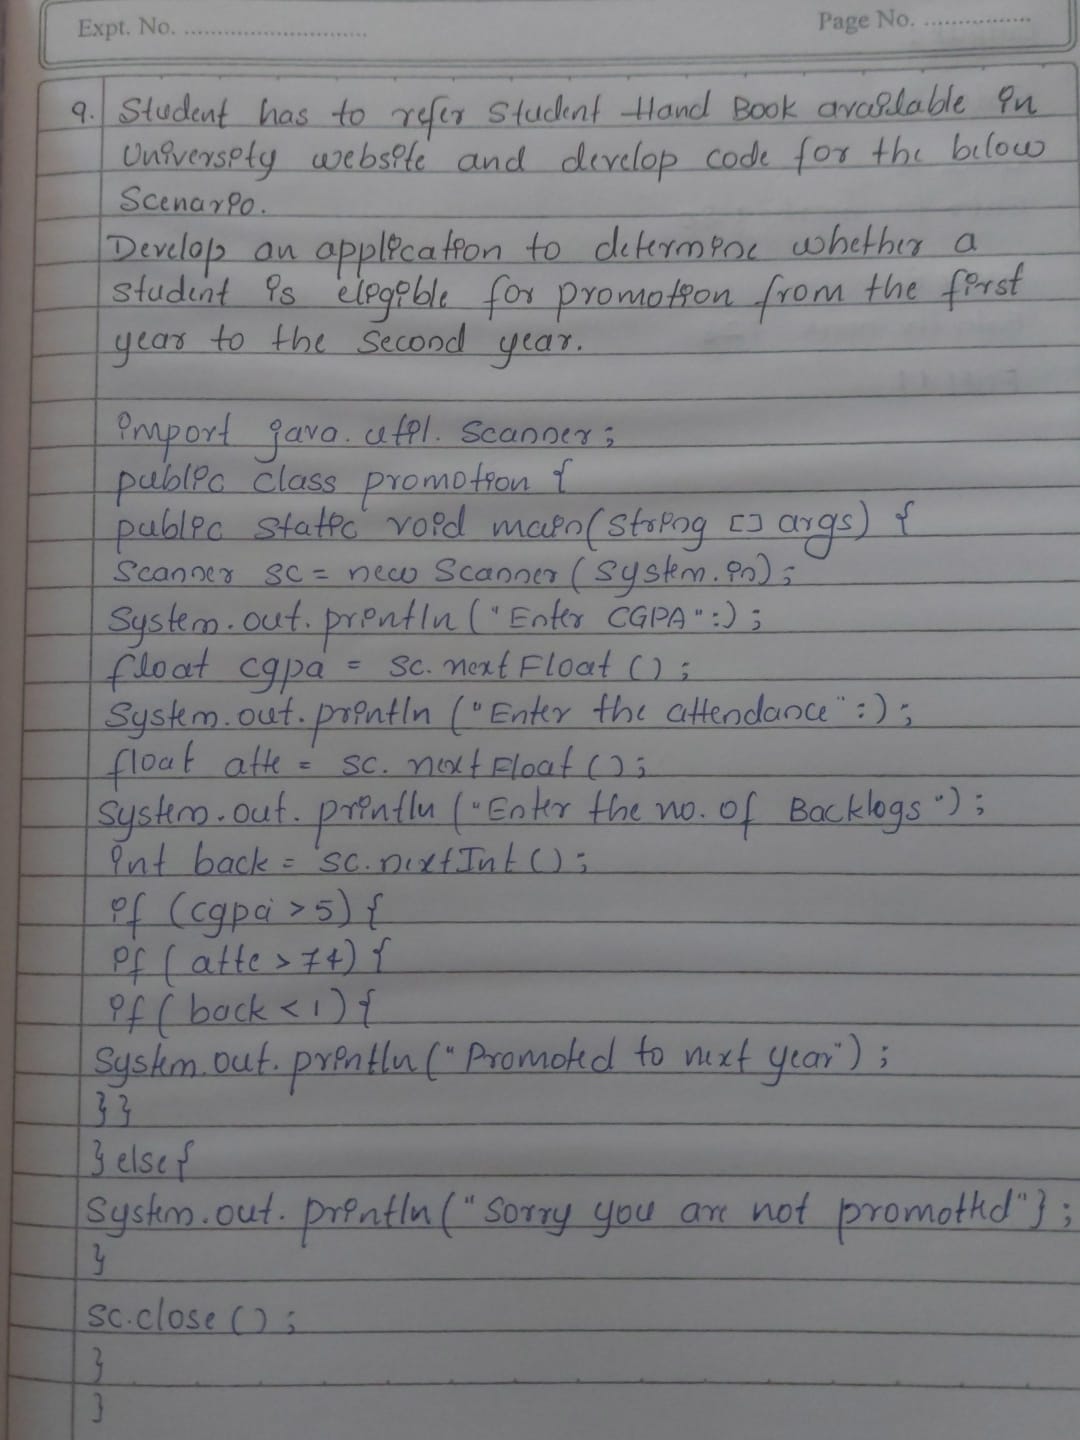 Expt. No. ..............................
Page No. ................
9. Student has to refer Student Hand Book available in
University website and develop code for the below
Scenario.
Develop an application to determine whether a
student is elegible for promotion from the first
year to the second year.
import java.util.Scanner;
public class promotion {
public static void main(String [] args) {
Scanner sc = new Scanner (System.in);
System.out.println ("Enter CGPA":);
float cgpa = sc.nextFloat ();
System.out.println ("Enter the attendance":);
float atte = sc.nextFloat ();
System.out.println ("Enter the no. of Backlogs");
int back = sc.nextInt ();
if (cgpa > 5) {
if ( atte > 74) {
if ( back < 1) {
System.out.println ("Promoted to next year");
}}
} else {
System.out.println ("Sorry you are not promotted"};
}
sc.close ();
}
}